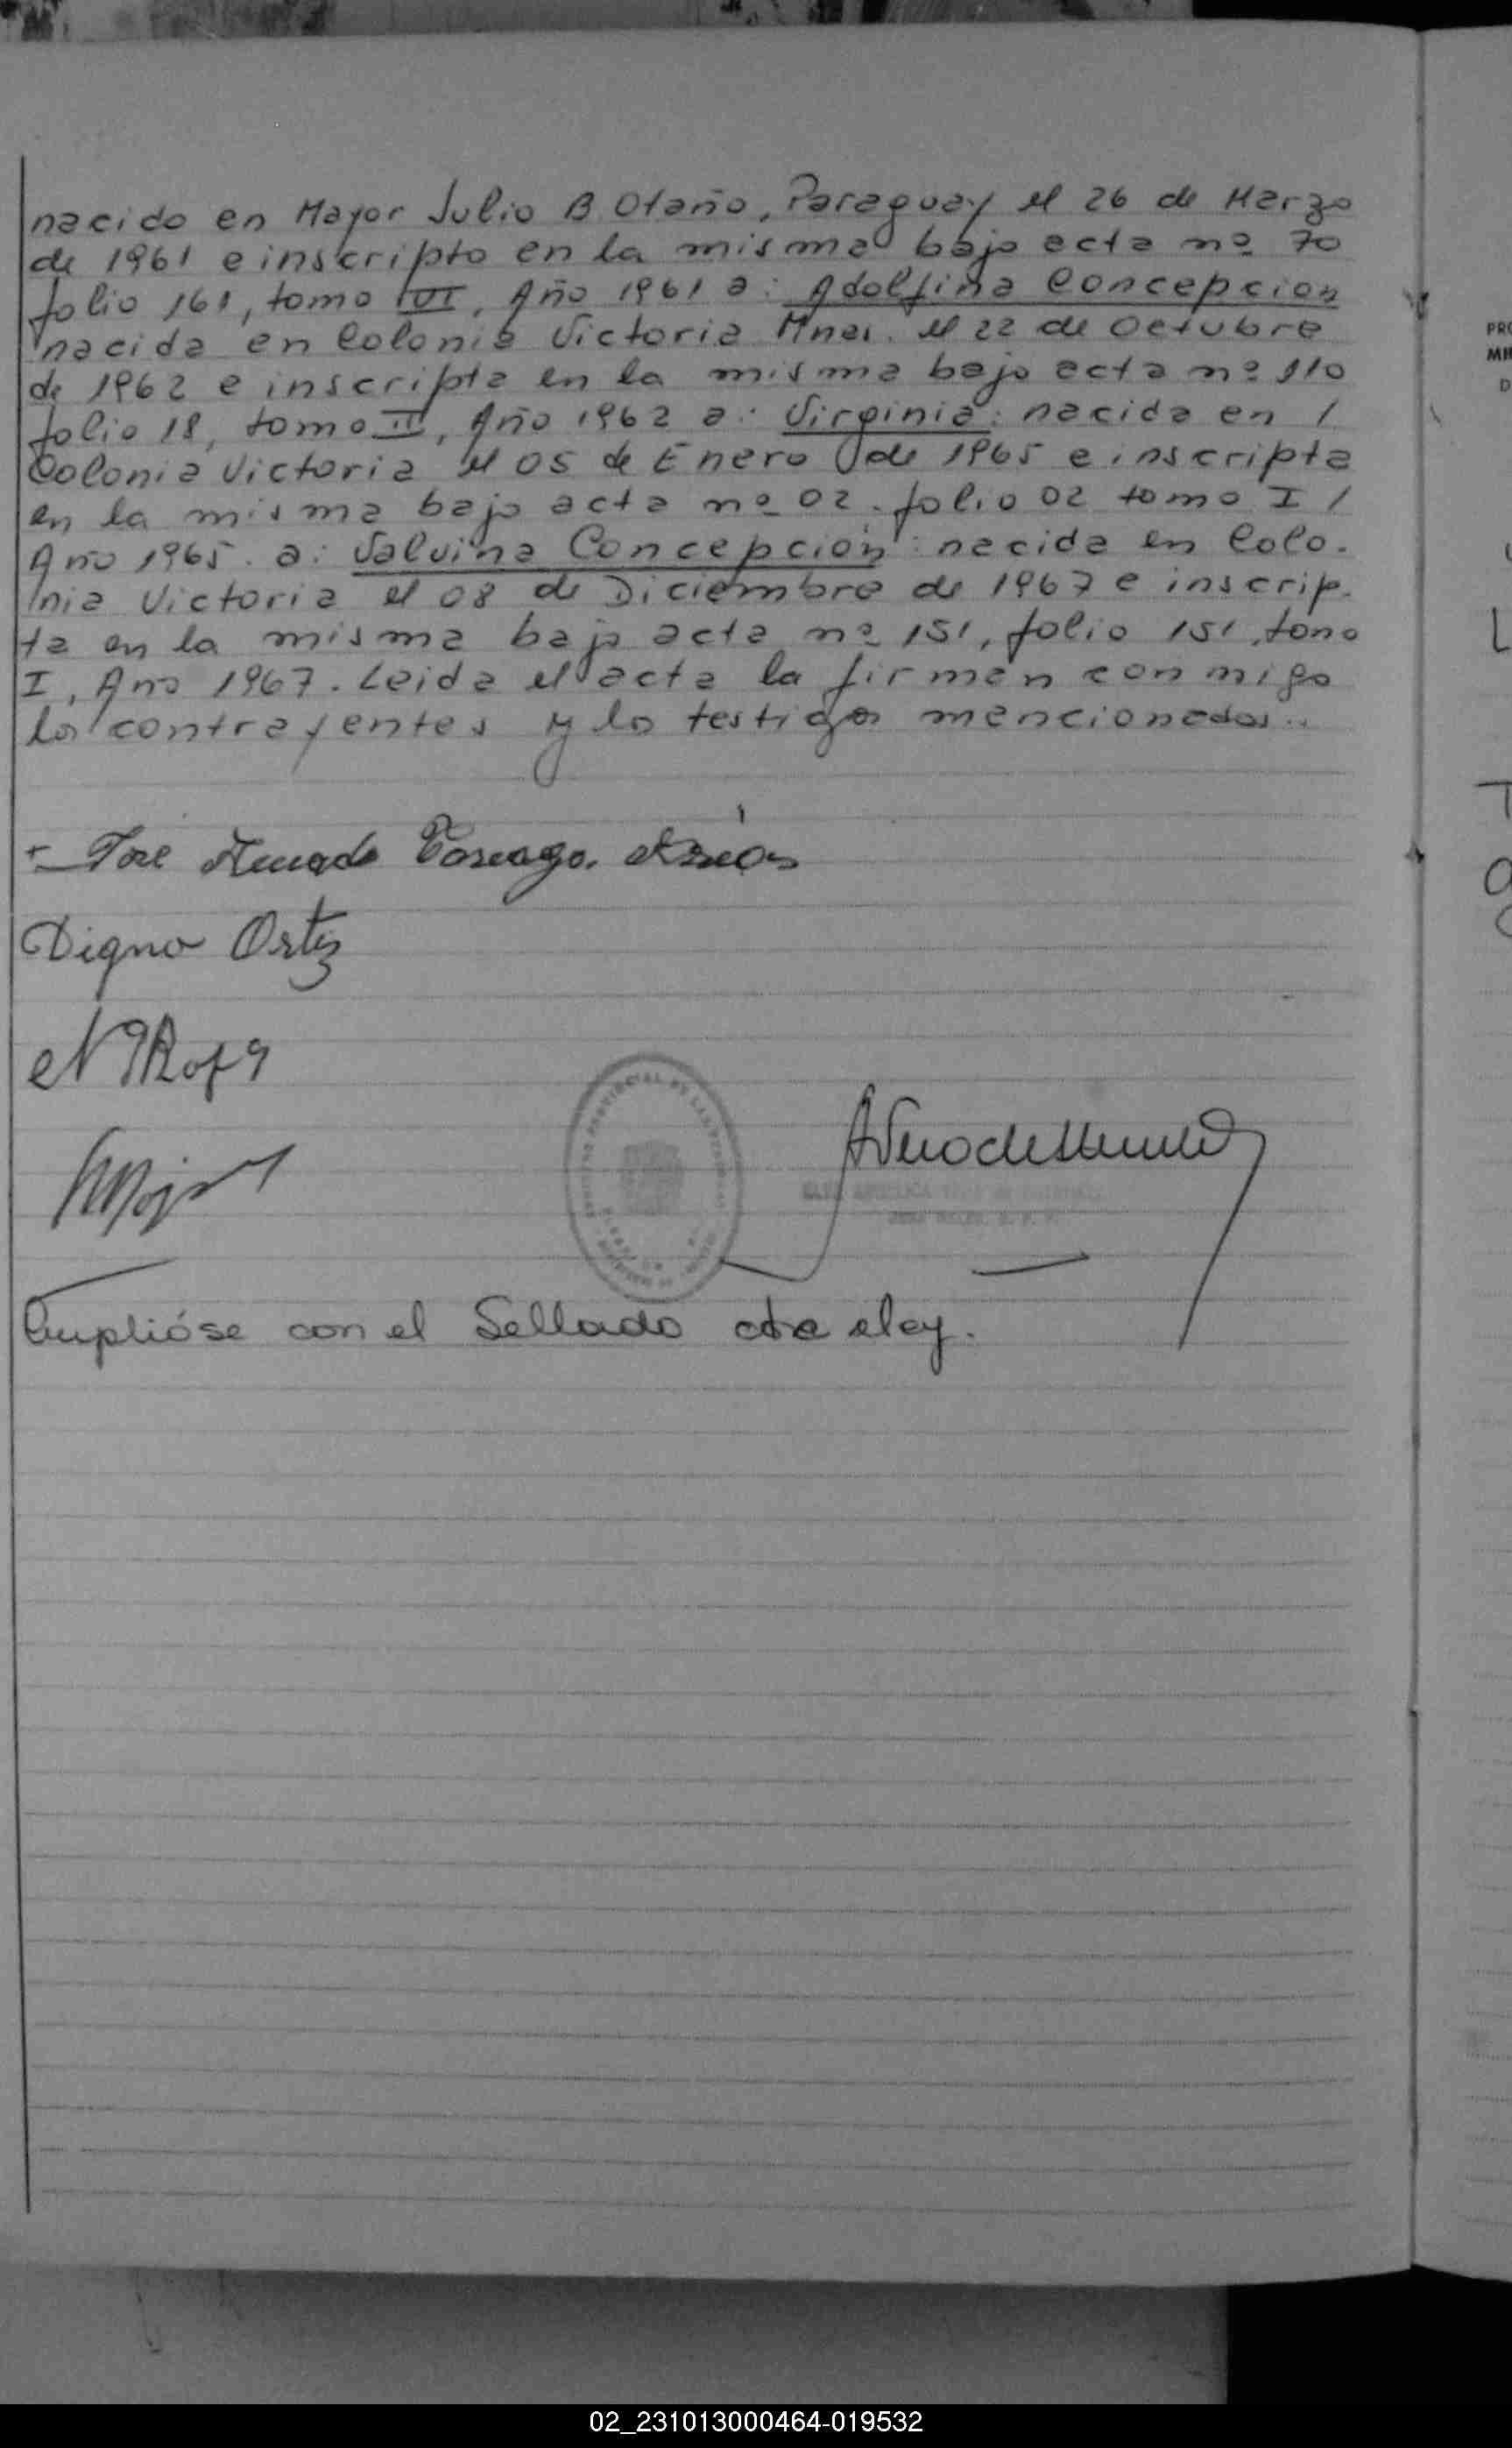 nacido en Mayor Julio B Otaño, Paraguay el 26 de Marzo
de 1961 e inscripto en la misma bajo acta nº 70
folio 161, tomo VI, Año 1961 a: Adolfina Concepcion
nacida en Colonia Victoria Mnes. el 22 de Octubre
de 1962 e inscripta en la misma bajo acta nº 110
folio 18, tomo III, Año 1962 a: Virginia: nacida en /
Colonia Victoria el 05 de Enero de 1965 e inscripta
en la misma bajo acta nº 02. folio 02 tomo I /
Año 1965. a: Salvina Concepcion: nacida en Colo.
nia Victoria el 08 de Diciembre de 1967 e inscrip.
ta en la misma bajo acta nº 151, folio 151, tomo
I, Año 1967. Leida el acta la firman con migo
los contrayentes y los testigos mencionados..
José Amado
Digno Ortiz
Cumplióse con el Sellado de ley.
PRO
MI
D
02_231013000464-019532